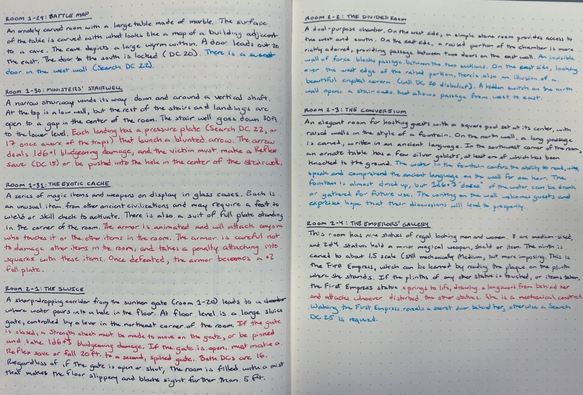 ROOM 1-29: BATTLE MAP
An ornately carved room with a large table made of marble. The surface
of the table is carved with what looks like a map of a building adjacent
to a cave. The cave depicts a large wyrm within. A door leads out to
the east. The door to the south is locked (DC 20). There is a secret
door in the west wall (Search DC 22).
ROOM 1-30: MINISTERS' STAIRWELL
A narrow stairway winds its way down and around a vertical shaft.
At the top is a low wall, but the rest of the stairs and landings are
open to a gap in the center of the room. The stair well goes down 30ft
to the lower level. Each landing has a pressure plate (Search DC 22, or
17 once aware of the traps) that launch a blunted arrow. The arrow
deals 1d6+1 bludgeoning damage, and the victim must make a Reflex
save (DC 15) or be pushed into the hole in the center of the stairwell.
ROOM 1-31: THE EXOTIC CACHE
A series of magic items and weapons on display in glass cases. Each is
an unusual item from other ancient civilizations and may require a feat to
wield or skill check to activate. There is also a suit of full plate standing
in the corner of the room. The armor is animated and will attack anyone
who touches it or the other items in the room. The armor is careful not
to damage other items in the room, and takes a penalty attacking into
squares with these items. Once defeated, the armor becomes a +2
full plate.
ROOM 2-1: THE SLUICE
A sharp dropping corridor from the sunken gate (room 1-20) leads to a
where water pours into a hole in the floor. At floor level is a large sluice
gate, controlled by a lever in the northeast corner of the room. If the gate
is closed, a Strength check must be made to move on the gate, or be pinned
and take 1d6+3 bludgeoning damage. If the gate is open, must make a
Reflex save or fall 20ft. to a second, spiked gate. Both DCs are 16.
Regardless of if the gate is open or shut, the room is filled with a mist
that makes the floor slippery and blocks sight further than 5 ft.
ROOM 2-2: THE DIVIDED ROOM
A dual-purpose chamber. On the west side, a simple stone room provides access to
the west and south. On the east side, a raised portion of the chamber is more
richly adorned, providing passage between two doors on the east wall. An invisible
wall of force blocks passage between the two sections. On the east side, looking
over the west edge of the raised portion, there is also an illusion of a
beautiful crystal cavern (Will DC 20 disbelief). A hidden switch on the north
wall opens a stair case and allows passage from west to east.
ROOM 2-3: THE CONVERSION
An elegant room for hosting guests with a square pool set at its center, with
raised walls in the style of a fountain. On the north wall, a long passage
is carved, written in an ancient language. In the southwest corner of the room,
an ornate table has a few silver goblets, at least one of which has been
knocked to the ground. The water in the fountain confers the ability to read, write,
speak and comprehend the ancient language on the wall for one hour. The
fountain is almost dried up, but 2d6+3 doses of the water can be drank
or gathered for future use. The writing on the wall welcomes guests and
expresses hope that their discussions will lead to prosperity.
ROOM 2-4: THE EMPERORS' GALLERY
This room has nine statues of regal looking men and women. 8 are medium-sized,
and 2d4 statues hold a minor magical weapon, shield or item. The ninth is
carved to about 1.5 scale (still mechanically Medium, but more imposing). This is
the First Empress, which can be learned by reading the plaque on the plinth
where she stands. If the plinths of any other statue is touched, or items taken,
the First Empress statue springs to life, drawing a longsword from behind her
and attacks whoever disturbed the other statues. She is a mechanical construct.
the First Empress reveals a secret door behind her, otherwise a Search
DC 25 is required.